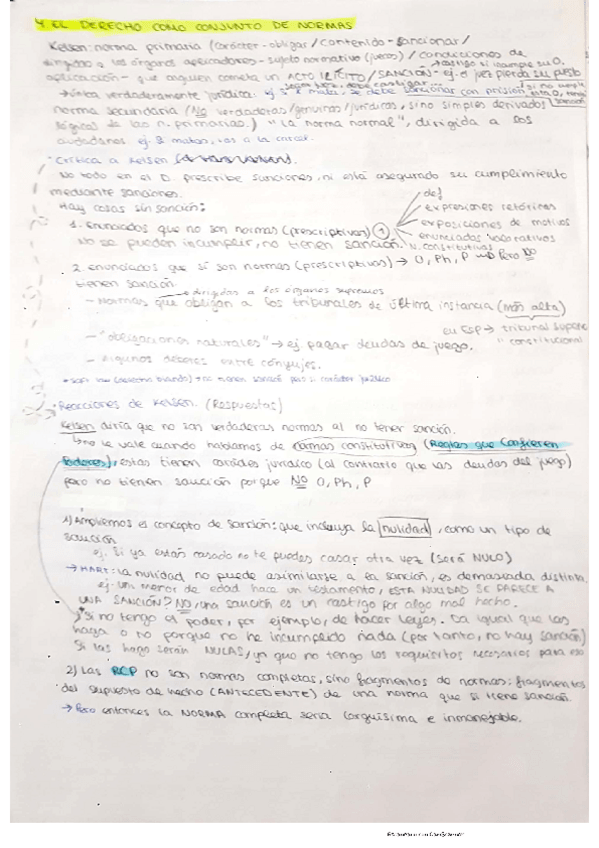 4. EL DERECHO COMO CONJUNTO DE NORMAS
Kelsen: norma primaria (carácter - obligar / contenido - sancionar /
dirigidas a los órganos aplicadores - sujeto normativo (jueces) / condiciones de
aplicación - que alguien cometa un ACTO ILÍCITO / SANCIÓN - ej. el juez pierda su puesto
castigo si incumple su O.
→ única verdaderamente jurídica. ej. Si X mata, se debe sancionar con prisión
norma secundaria (No verdaderas/genuinas/jurídicas, sino simples derivados
lógicas de las n. primarias.) "La norma normal", dirigida a los
ciudadanos ej. Si matas, vas a la cárcel.
Crítica a Kelsen
No todo en el D. prescribe sanciones, ni está asegurado su cumplimiento
mediante sanciones.
Hay cosas sin sanción:
def
expresiones retóricas
1. enunciados que no son normas (prescriptivos) 1
exposiciones de motivos
enunciados valorativos
No se pueden incumplir, no tienen sanción. N. constitutivas
2. enunciados que sí son normas (prescriptivos) → O, Ph, P → Pero NO
tienen sanción
dirigidas a los órganos supremos
- Normas que obligan a los tribunales de última instancia (más alta)
en ESP → tribunal supremo
" constitucional
- "obligaciones naturales" → ej. pagar deudas de juego.
- algunos deberes entre cónyuges.
Reacciones de Kelsen. (Respuestas)
Kelsen diría que no son verdaderas normas al no tener sanción.
↳ no le vale cuando hablamos de normas constitutivas (Reglas que Confieren
Poderes), estas tienen carácter jurídico (al contrario que las deudas del juego)
pero no tienen sanción porque No O, Ph, P
1) Ampliemos el concepto de sanción: que incluya la nulidad, como un tipo de
sanción
ej. Si ya estás casado no te puedes casar otra vez (será NULO)
→ HART: La nulidad no puede asimilarse a la sanción, es demasiada distinta.
ej: un menor de edad hace un testamento, ESTA NULIDAD SE PARECE A
UNA SANCIÓN? NO, una sanción es un castigo por algo mal hecho.
Si no tengo el poder, por ejemplo, de hacer leyes. Da igual que las
haga o no porque no he incumplido nada (por tanto, no hay sanción)
Si las hago serán NULAS, ya que no tengo los requisitos necesarios para eso
2) Las RCP no son normas completas, sino fragmentos de normas: fragmentos
del supuesto de hecho (ANTECEDENTE) de una norma que sí tiene sanción.
→ Pero entonces la NORMA completa sería larguísima e inmanejable.